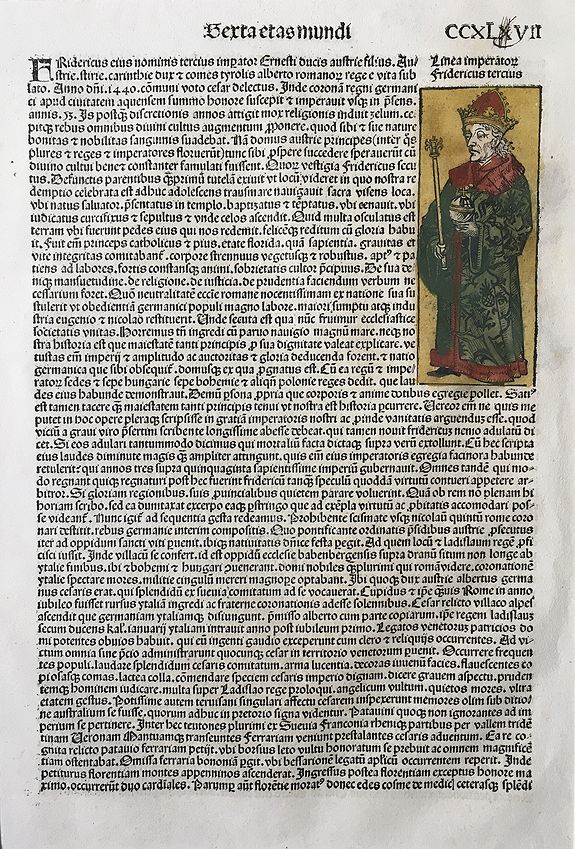 Sexta etas mundi
CCXLXVII
Linea imperatoꝝ
Fridericus tercius
FRidericus eius nominis tercius imꝑator Ernesti ducis austrie filius. Au-
strie. stirie. carinthie dux ⁊ comes tyrolis alberto romanoꝝ rege e vita sub
lato. Anno dñi. 1440. cõmuni voto cesar delectus. Inde coronã regni germani
ci apud civitatem aquensem summo honore suscepit ⁊ imperauit vsqꝫ in p̃sens.
annis. 53. Is postqꝫ discretionis annos attigit mox religionis induit zelum. ce-
pitqꝫ rebus omnibus diuini cultus augmentum ꝓponere. quod sibi ⁊ sue nature
bonitas ⁊ nobilitas sanguinis suadebat. Nã domus austrie principes (inter q̃s
plures ⁊ reges ⁊ imperatores floruerũt) tunc sibi ꝓspere succedere sperauerũt cũ
diuino cultui bene ⁊ constanter famulati fuissent. Quor̃ vestigia Fridericus secu
tus. Defunctis parentibus qͣꝫprimũ tutela exiuit vt locũ videret in quo nostra re
demptio celebrata est adhuc adolescens trasmare nauigauit sacra visens loca.
vbi natus saluator. p̃sentatus in templo. baptizatus ⁊ tẽptatus. vbi cenauit. vbi
iudicatus curcifixus ⁊ sepultus ⁊ vnde celos ascendit. Quid multa osculatus est
terram vbi fuerunt pedes eius qui nos redemit. felicẽqꝫ reditum cũ gloria habu
it. Fuit em̃ princeps catholicus ⁊ pius. etate florida. quã sapientia. grauitas et
vite integritas comitabant̃. corpore strennuus vegetusqꝫ ⁊ robustus. apt⁹ ⁊ pa
tiens ad labores. fortis constansqꝫ animi. sobrietatis cultor p̃cipuus. De sua de
niqꝫ mansuetudine. de religione. de iusticia. de prudentia faciendum verbum ne
cessarium foret. Quõ neutralitatẽ eccl̃e romane nocentissimam ex natione sua su
stulerit vt obedientiã germani populi magno labore. maiori sumptu atqꝫ indu
stria eugenio ⁊ nicolao restituerit. Unde secuta est qua nũc fruimur ecclesiastice
societatis vnitas. Horremus tñ ingredi cũ paruo nauigio magnũ mare. neqꝫ no
stra historia est que maiestatẽ tanti principis ꝓ sua dignitate valeat explicare. ve
tustas em̃ imperij ⁊ amplitudo ac auctoritas ⁊ gloria deducenda forent. ⁊ natio
germanica que sibi obsequit̃. domusqꝫ ex qua ꝓgnatus est. Cũ ea regũ ⁊ impe-
ratoꝝ sedes ⁊ sepe hungarie sepe bohemie ⁊ aliqñ polonie reges dedit. que lau
des eius habunde demonstraut. Demũ ꝑsona ꝓpria que corporis ⁊ anime dotibus egregie pollet. Sati⁹
est tamen tacere qͣꝫ maiestatem tanti principis tenui vt nostra est historia ꝑcurrere. Uereor em̃ ne quis me
putet in hoc opere pleraqꝫ scripsisse in gratiã imperatoris nostri ac ꝓinde vanitatis arguendũ esse. quod
viciũ a graui viro p̃sertim scribente longissime abesse debeat. qui tamen nouit fridericũ nemo adulatũ di
cet. Si eos adulari tantummodo dicimus qui mortaliũ facta dictaqꝫ supra verũ extollunt. Cũ hec scripta
eius laudes diminute magis qͣꝫ ampliter attingunt. quis em̃ eius imperatoris egregia facinora habunde
retulerit: qui annos tres supra quinquaginta sapientissime imperiũ gubernauit. Omnes tandẽ qui mo-
do regnant quiqꝫ regnaturi post hec fuerint fridericũ tanqͣꝫ speculũ quoddã virtutũ contueri appetere ar-
bitror. Si gloriam regionibus. suis ꝓuincialibus quietem parare voluerint. Quã ob rem nõ plenam hi
storiam scribo. sed ea duntaxat excerpo eaqꝫ ꝑstringo que ad exẽpla virtutũ ac ꝓbitatis accomodari pos-
se videant̃. Nunc igit̃ ad sequentia gesta redeamus. Prohibente scismate vsqꝫ nicolaũ quintũ rome coro
nari destitit. rebus germanie interim compositis. Quo pontificante ordinatis p̃sidibus austrie ꝓsecutus
iter ad oppidum sancti viti ꝑuenit. ibiqꝫ natiuitatis dñice festa ꝑegit. Ad quem locũ ⁊ ladislaum regẽ ꝓfi
cisci iussit. Inde villacũ se confert. id est oppidũ ecclesie babenbergensis supra dranũ situm non longe ab
ytalie finibus. ibi ⁊ bohemi ⁊ hungari ꝯuenerant. domi nobiles qͣꝫplurimi qui romã videre. coronationẽ
ytalie spectare mores. militie cingulũ mereri magnoꝑe optabant. Ibi quoqꝫ dux austrie albertus germa
nus cesaris erat. qui splendidũ ex sueuia comitatum ad se vocauerat. Cupidus ⁊ ip̃e quis Rome in anno
iubileo fuisset rursus ytaliã ingredi ac fraterne coronationis adesse solennibus. Cesar relicto villaco alpes
ascendit que germaniam ytaliamqꝫ disiungunt. p̃misso alberto cum parte copiarum. ip̃e regem ladislaus
secum ducens kal̃. ianuarij ytaliam intrauit anno post iubileum primo. Legatos venetorum patricios do
mi potentes obuios habuit. qui eũ ingenti gaudio exceperunt cum clero ⁊ reliquijs occurrentes. Ad vi-
ctum omnia sine p̃cio administrarunt quocunqꝫ cesar in territorio venetorum ꝑuenit. Occurrere frequen
tes populi. laudare splendidum cesaris comitatum. arma lucentia. decoras iuuenũ facies. flauescentes co
piosasqꝫ comas. lactea colla. cõmendare speciem cesaris imperio dignam. dicere grauem aspectu. pruden
temqꝫ hominem iudicare. multa super Ladislao rege ꝓloqui. angelicum vultum. quietos mores. vltra
etatem gestus. Potissime autem teruisani singulari affectu cesarem inspexerunt memores olim sub ditio/
ne australium se fuisse. quorum adhuc in pretorio signa videntur. Patauini quoqꝫ non ignorantes ad im
perium se pertinere. Inter hec teutones plurimi ex Sueuia Franconia rhenicqꝫ partibus per vallem tride
tinam Ueronam Mantuamqꝫ transeuntes Ferrariam venerunt prestolantes cesaris aduentum. Ea re co-
gnita relicto patauio ferrariam petijt. vbi borsius leto vultu honoratum se prebuit ac omnem magnificẽ
tiam ostentabat. Omissa ferraria bononiã ꝑgit. vbi bessarionẽ legatũ apl̃icũ occurrentem reperit. Inde
petiturus florentiam montes appenninos ascenderat. Ingressus postea florentiam exceptus honore ma
ximo. occurrerũt duo cardiales. Parumꝑ aũt florẽtie morat⁹ donec edes cosme de medicꝫ ceterasqꝫ splẽdi